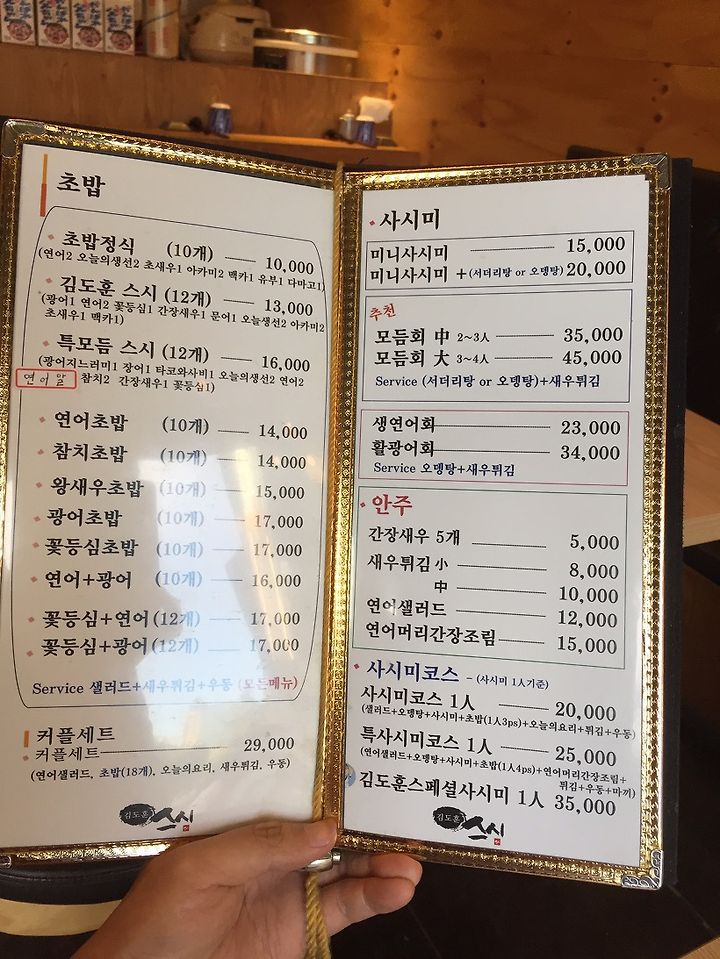 초밥
초밥정식 (10개) 10,000
(연어2 오늘의생선2 초새우1 아카미2 맥카1 유부1 다마고1)
김도훈 스시 (12개) 13,000
(광어1 연어2 꽃등심1 간장새우1 문어1 오늘생선2 아카미2
초새우1 맥카1)
특모듬 스시 (12개) 16,000
(광어지느러미1 장어1 타코와사비1 오늘의생선2 연어2
연어알 참치2 간장새우1 꽃등심1)
연어초밥 (10개) 14,000
참치초밥 (10개) 14,000
왕새우초밥 (10개) 15,000
광어초밥 (10개) 17,000
꽃등심초밥 (10개) 17,000
연어+광어 (10개) 16,000
꽃등심+연어 (12개) 17,000
꽃등심+광어 (12개) 17,000
Service 샐러드+새우튀김+우동 (모든메뉴)
커플세트
커플세트 29,000
(연어샐러드, 초밥(18개), 오늘의요리, 새우튀김, 우동)
김도훈 스시
사시미
미니사시미 15,000
미니사시미 + (서더리탕 or 오뎅탕) 20,000
추천
모듬회 中 2~3人 35,000
모듬회 大 3~4人 45,000
Service (서더리탕 or 오뎅탕)+새우튀김
생연어회 23,000
활광어회 34,000
Service 오뎅탕+새우튀김
안주
간장새우 5개 5,000
새우튀김 小 8,000
中 10,000
연어샐러드 12,000
연어머리간장조림 15,000
사시미코스 - (사시미 1人기준)
사시미코스 1人 20,000
(샐러드+오뎅탕+사시미+초밥(1人3ps)+오늘의요리+튀김+우동)
특사시미코스 1人 25,000
(연어샐러드+오뎅탕+사시미+초밥(1人4ps)+연어머리간장조림+
튀김+우동+마끼)
김도훈스페셜사시미 1人 35,000
김도훈 스시